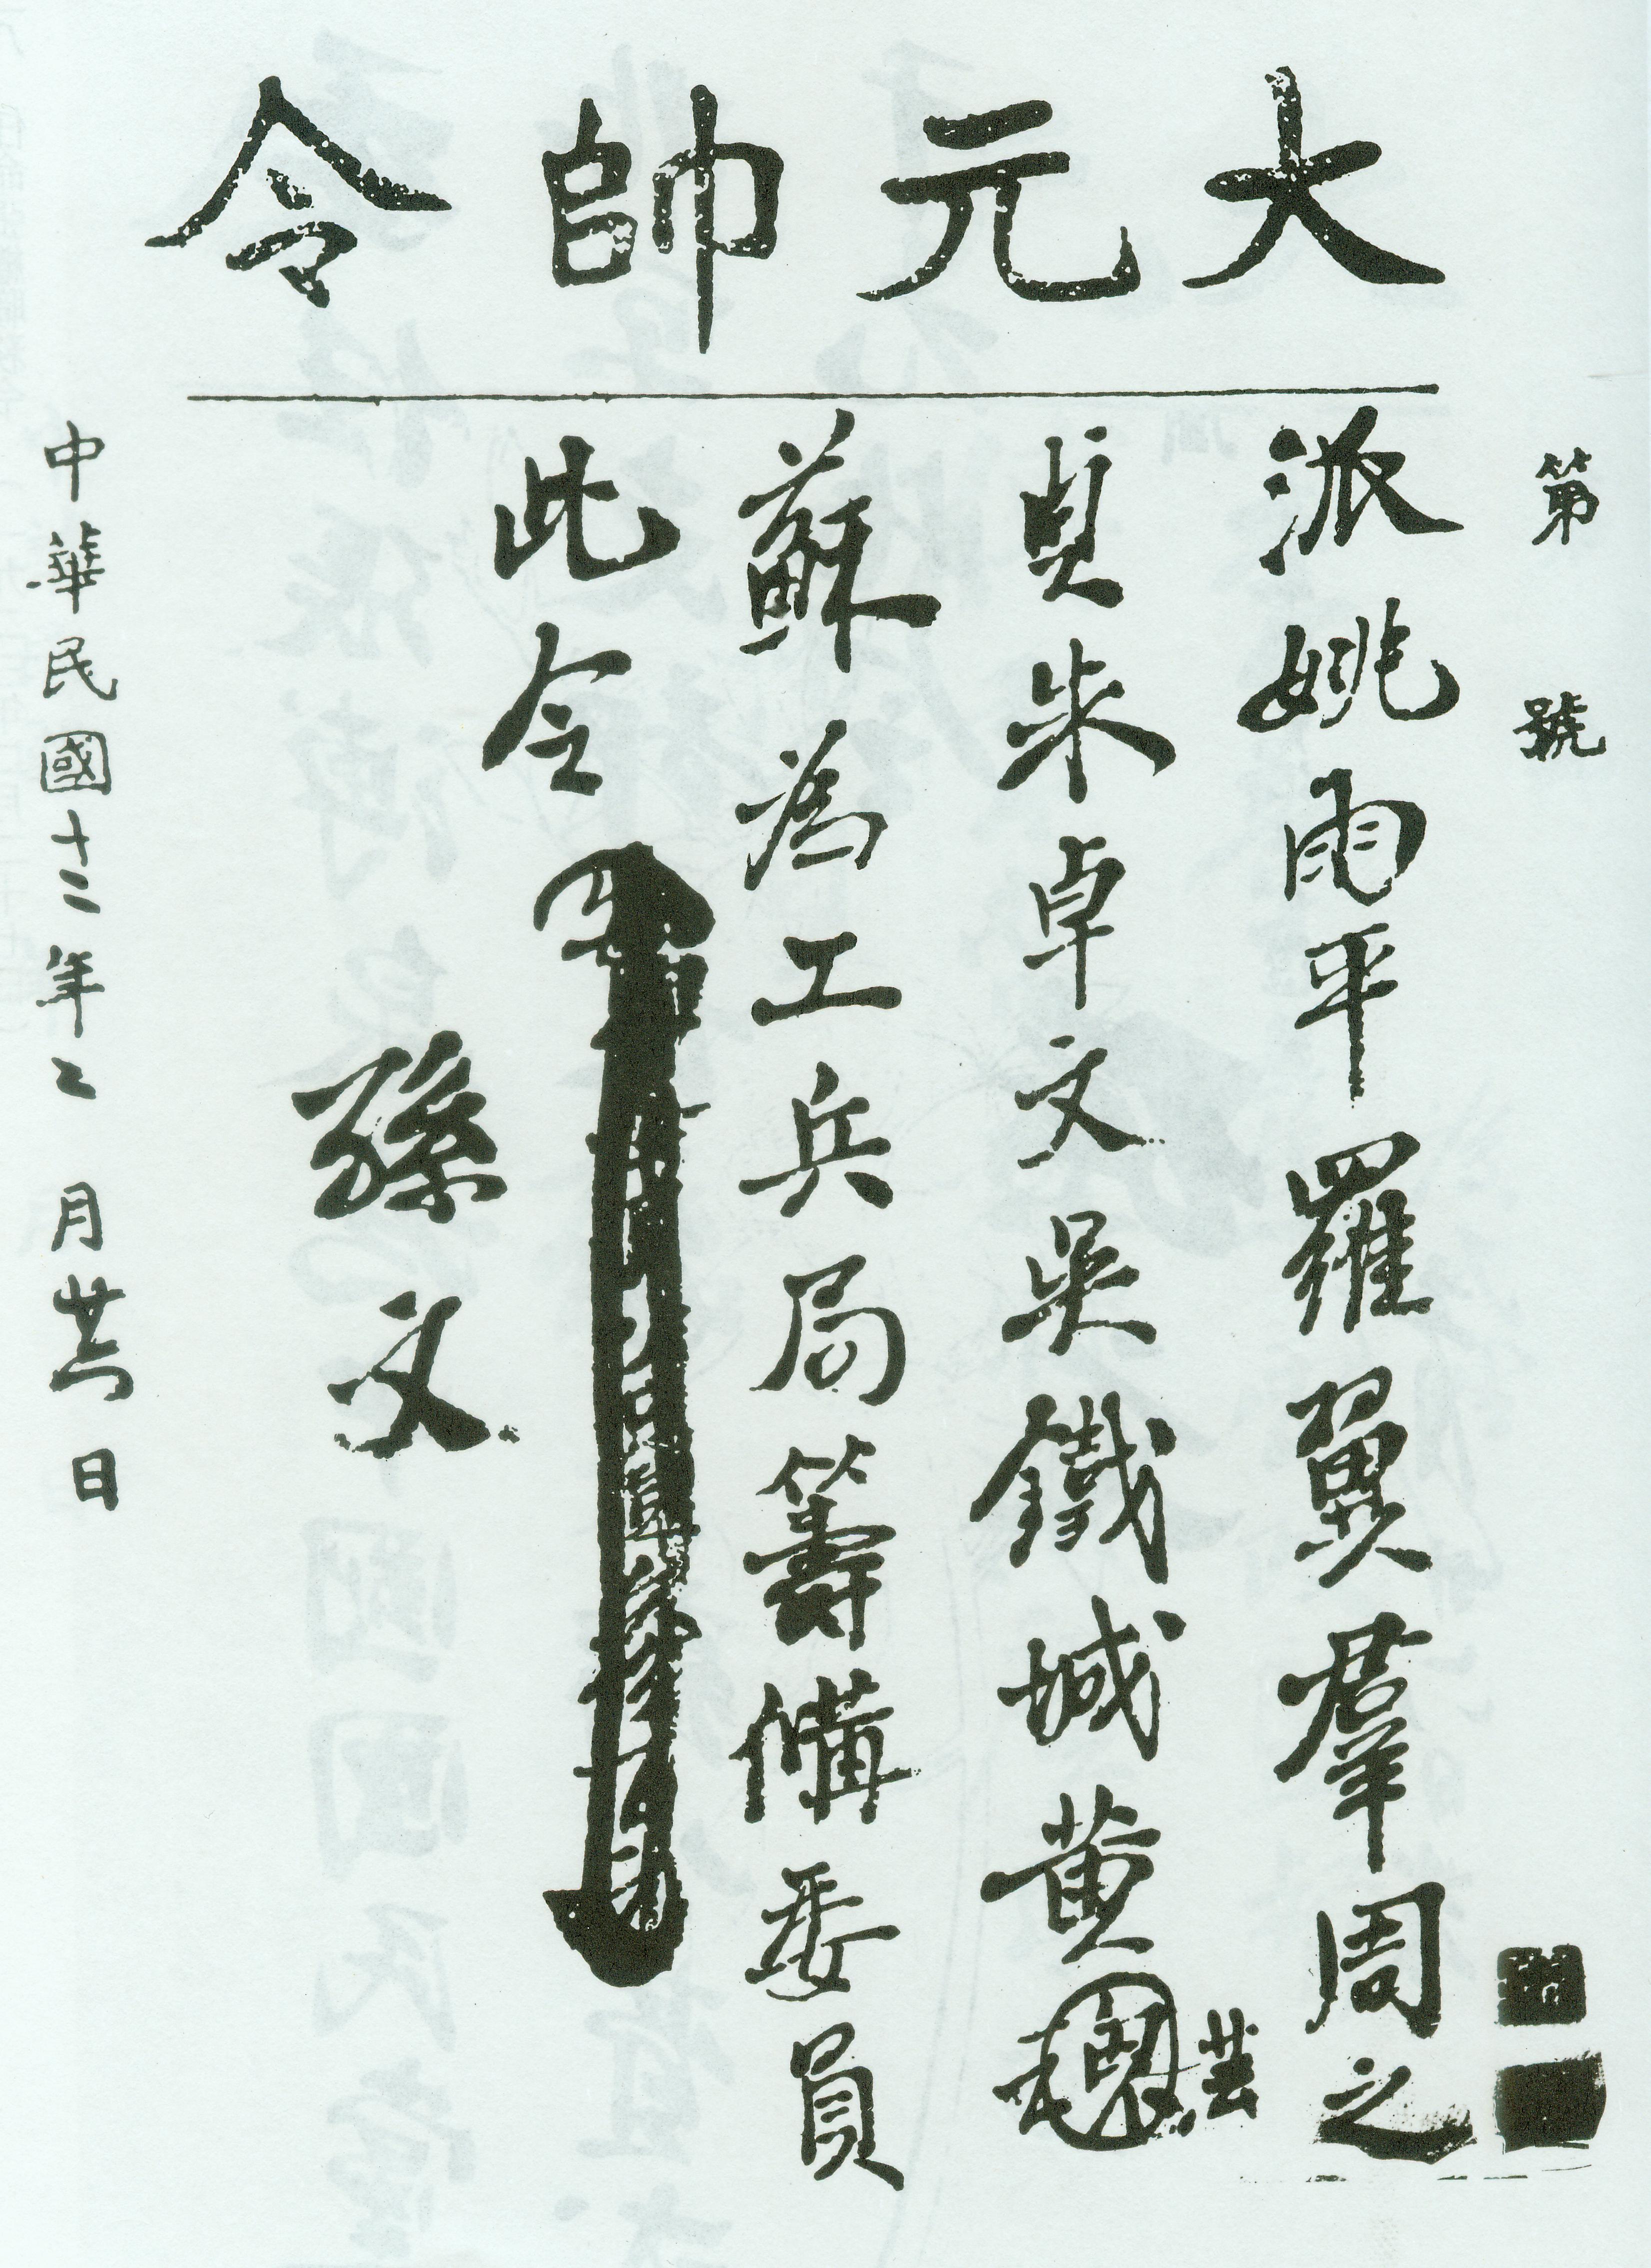 大元帥令
第 號
派姚雨平羅翼羣周之
貞朱卓文吳鐵城黃芸
蘇為工兵局籌備委員
此令
孫文
中華民國十二年二月廿日